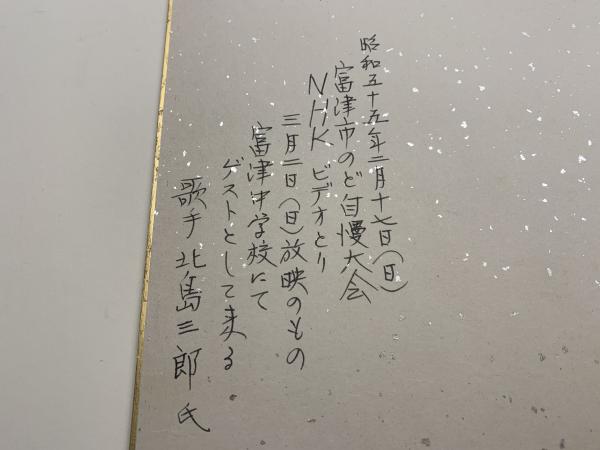 昭和五十五年二月十七日(日)
富津市のど自慢大会
NHKビデオとり
三月二日(日)放映のもの
富津中学校にて
ゲストとして来る
歌手北島三郎氏